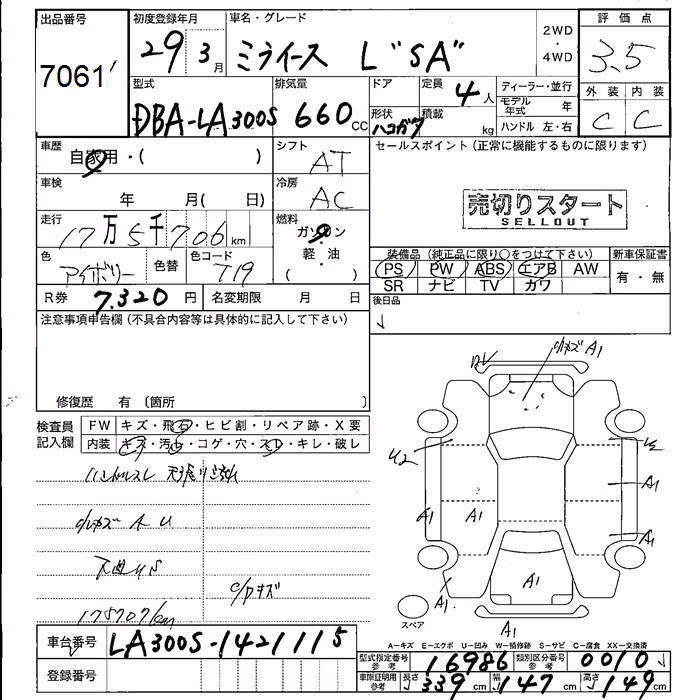 出品番号 初度登録年月 車名・グレード 評価点
7061 29 3月 ミライース L"SA" 2WD・4WD 3.5
型式 排気量 ドア 定員 4人 ディーラー・並行 外装 内装
DBA-LA300S 660cc 形状 ハコガタ 積載 kg モデル年式 年 ハンドル 左・右 C C
車歴 自家用・( ) シフト AT セールスポイント(正常に機能するものに限ります)
車検 年 月( 日) 冷房 AC 売切りスタート
SELLOUT
走行 17万5千706km 燃料 ガソリン・軽・油( )
色 アイボリー 色替 色コード T19 装備品(純正品に限り○をつけて下さい) 新車保証書
PS PW ABS エアB AW 有・無
SR ナビ TV カワ
R券 7,320円 名変期限 月 日 後日品
注意事項申告欄(不具合内容等は具体的に記入して下さい)
修復歴 有〔箇所 〕
検査員記入欄 FW キズ・飛石・ヒビ割・リペア跡・X要
内装 キズ・汚れ・コゲ・穴・スレ・キレ・破レ
ハンドルスレ
A U
175707km
A1
A1
U2
A1
A1
A1
A1
A1
A1
スペア
A-キズ E-エクボ U-凹み W-補修跡 S-サビ C-腐食 XX-交換済
車台番号 LA300S-1421115 型式指定番号参考 16986 類別区分番号参考 0010
登録番号 車庫証明用参考 長さ 339cm 幅 147cm 高さ 149cm